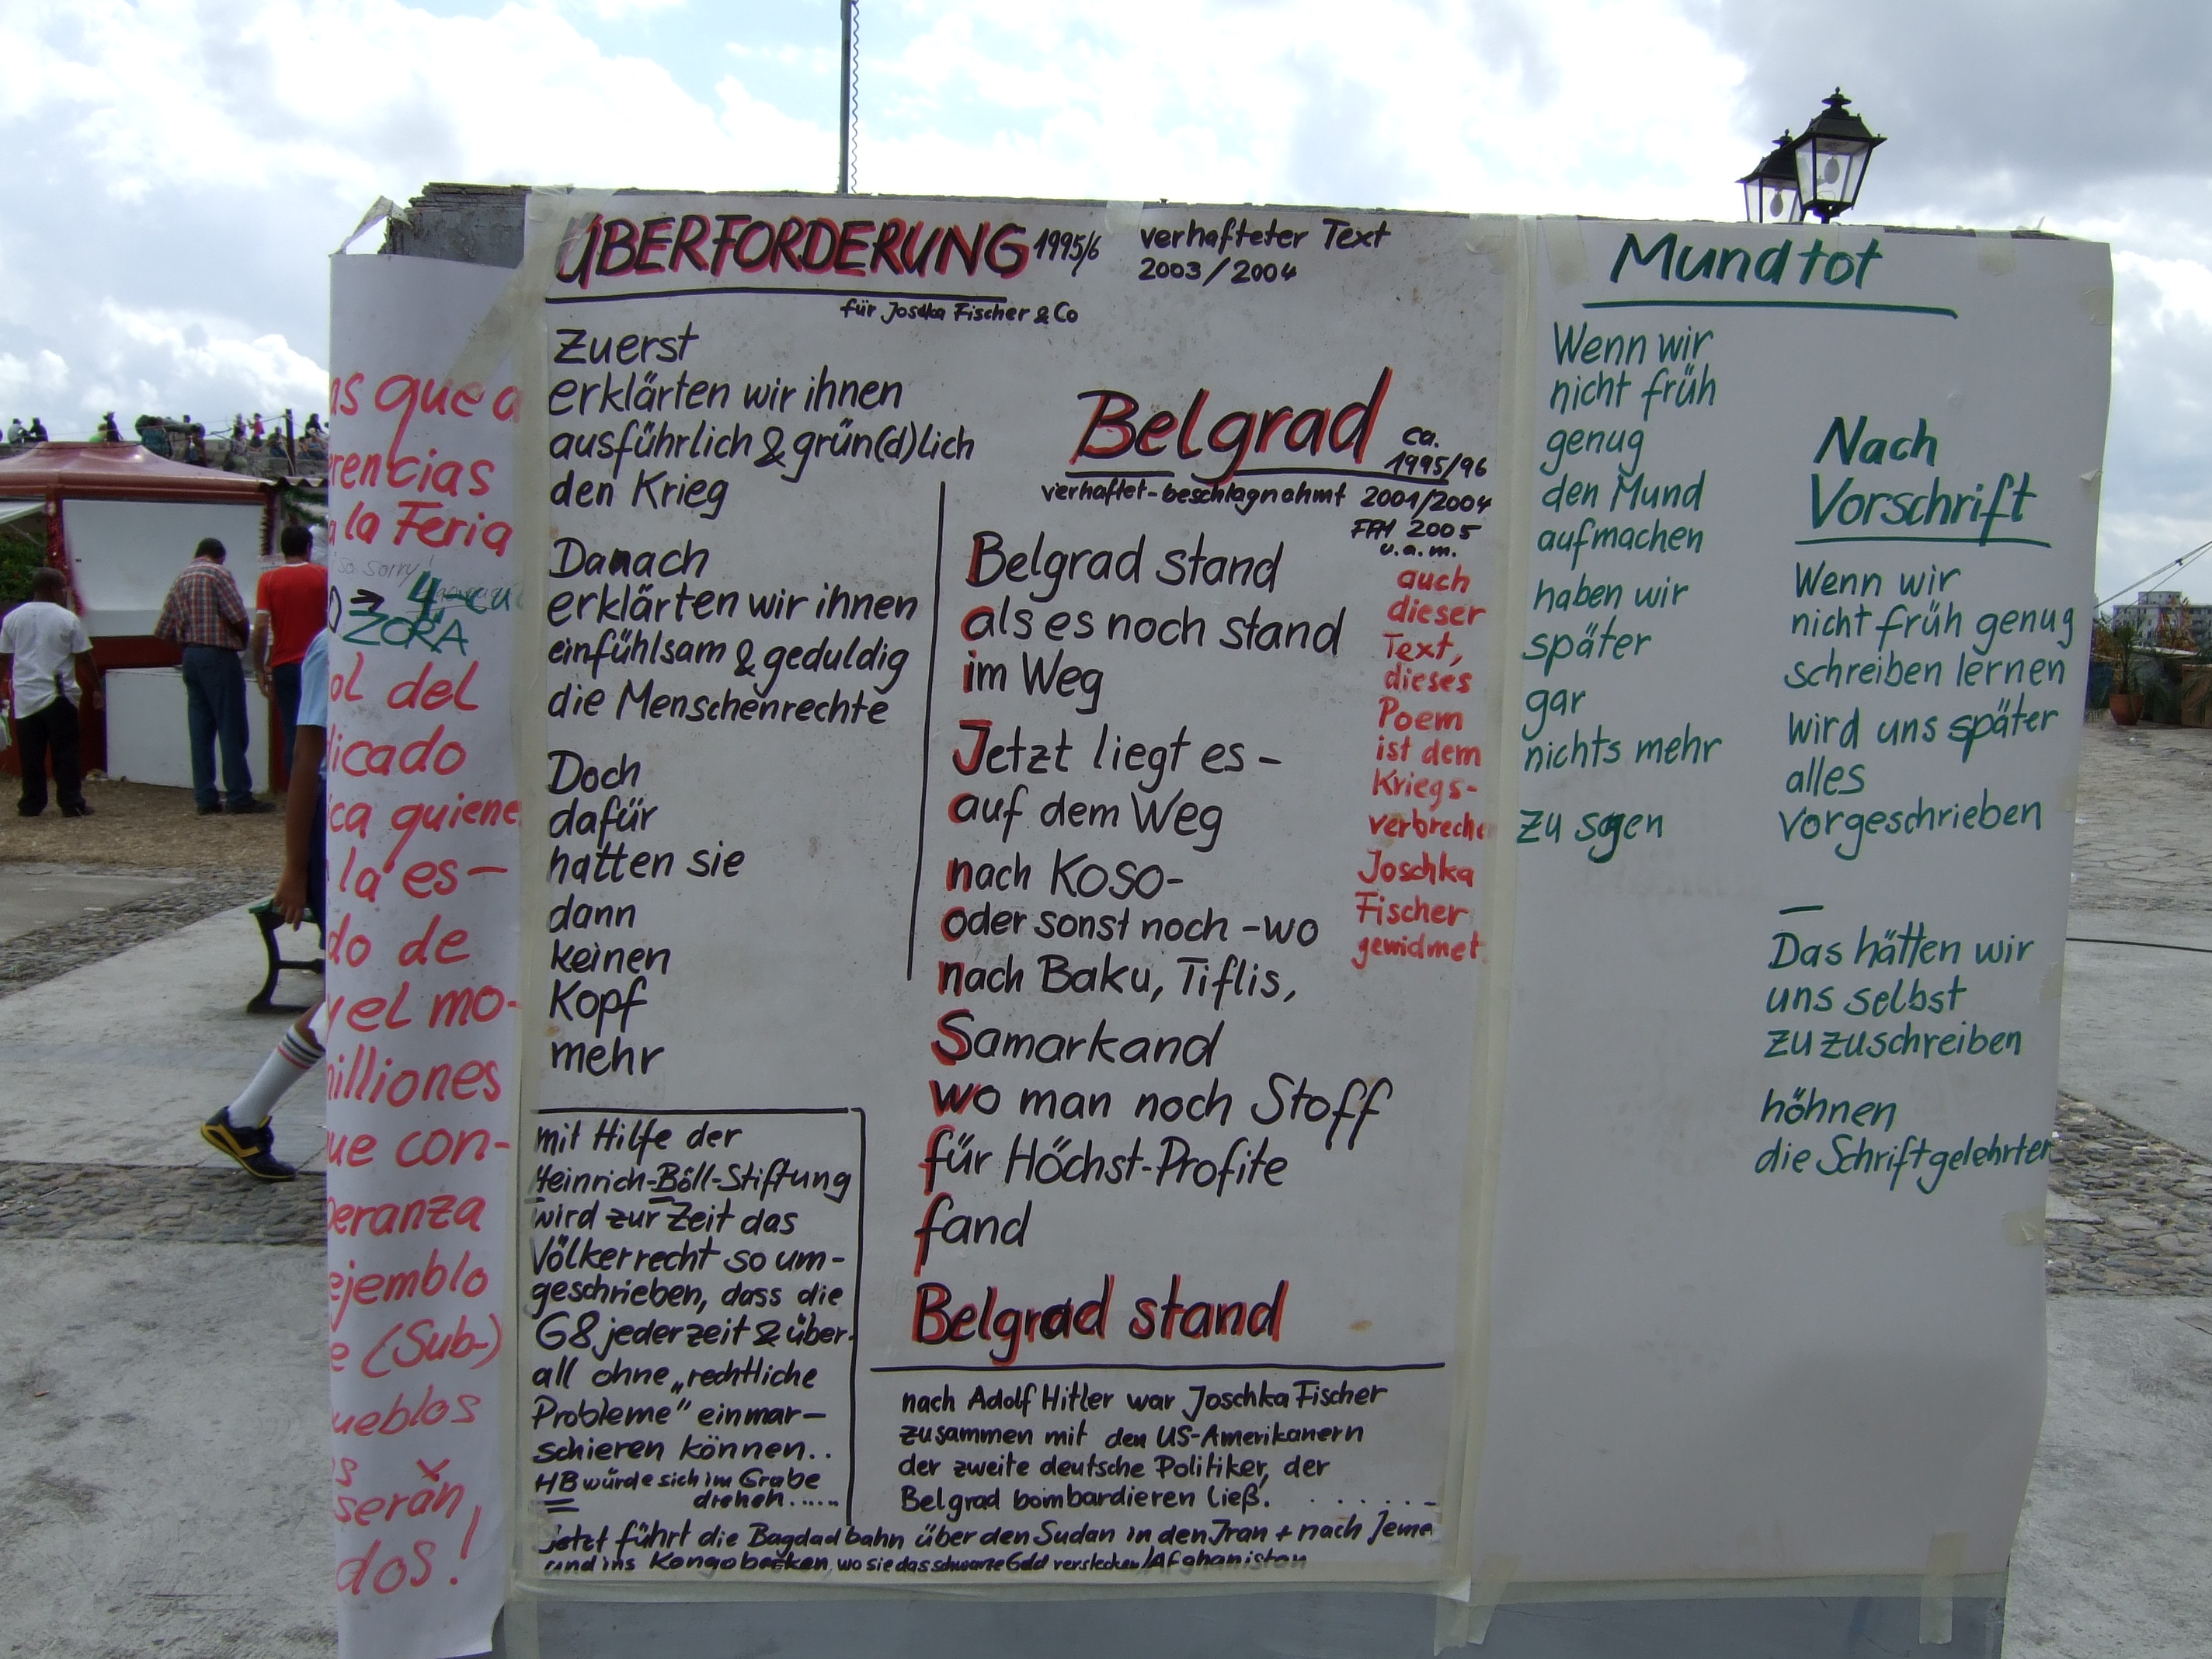 as que a
rencias
a la Feria
so sorry!
4-cu
ZORA
ol del
licado
ica quiene
la es-
do de
y el mo-
milliones
ue con-
peranza
ejemblo
e (Sub-)
ueblos
os
serán
dos!
ÜBERFORDERUNG 1995/6
für Joschka Fischer & Co
verhafteter Text
2003/2004
Zuerst
erklärten wir ihnen
ausführlich & grün(d)lich
den Krieg
Danach
erklärten wir ihnen
einfühlsam & geduldig
die Menschenrechte
Doch
dafür
hatten sie
dann
keinen
Kopf
mehr
mit Hilfe der
Heinrich-Böll-Stiftung
wird zur Zeit das
Völkerrecht so um-
geschrieben, dass die
G8 jederzeit & über-
all ohne „rechtliche
Probleme" einmar-
schieren können..
HB würde sich im Grabe
drehen......
Belgrad ca.
1995/96
verhaftet-beschlagnahmt 2001/2004
FFM 2005
u.a.m.
Belgrad stand
als es noch stand
im Weg
Jetzt liegt es -
auf dem Weg
nach Koso-
oder sonst noch -wo
nach Baku, Tiflis,
Samarkand
wo man noch Stoff
für Höchst-Profite
fand
Belgrad stand
auch
dieser
Text,
dieses
Poem
ist dem
Kriegs-
verbreche
Joschka
Fischer
gewidmet
nach Adolf Hitler war Joschka Fischer
zusammen mit den US-Amerikanern
der zweite deutsche Politiker, der
Belgrad bombardieren ließ. . . . . . . -
jetzt führt die Bagdadbahn über den Sudan in den Iran + nach Jeme
und ins Kongobecken, wo sie das schwarze Gold verstecken/Afghanistan
Mundtot
Wenn wir
nicht früh
genug
den Mund
aufmachen
haben wir
später
gar
nichts mehr
zu sagen
Nach
Vorschrift
Wenn wir
nicht früh genug
schreiben lernen
wird uns später
alles
vorgeschrieben
—
Das hätten wir
uns selbst
zuzuschreiben
höhnen
die Schriftgelehrten